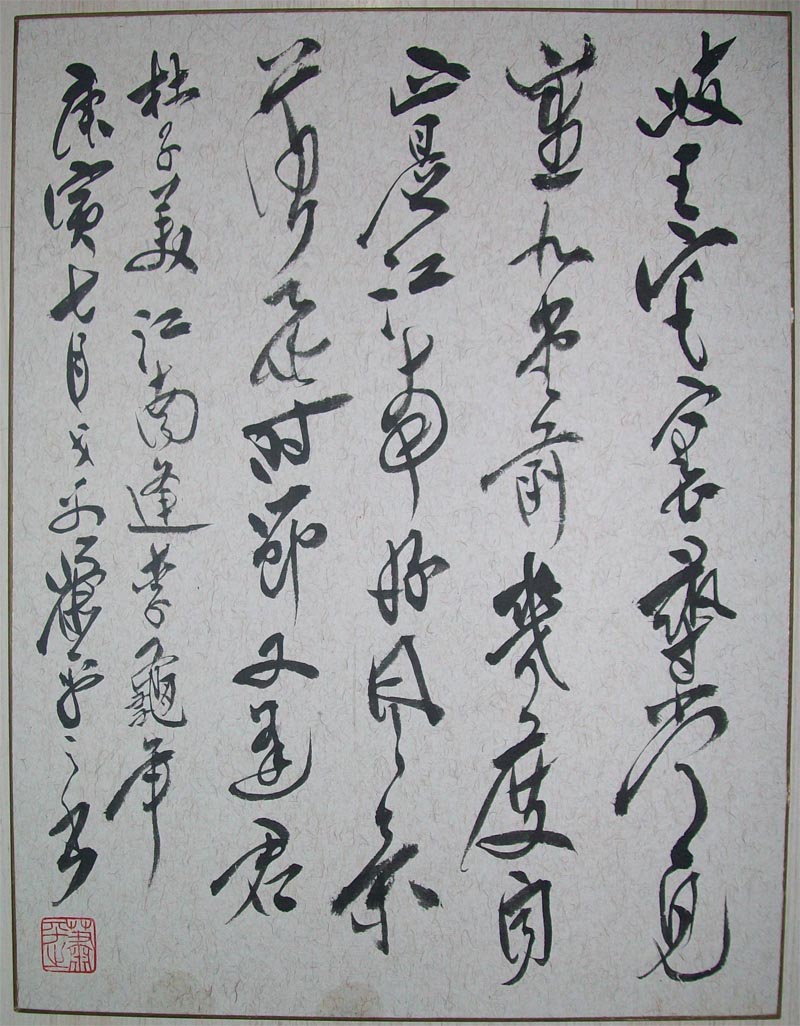 岐王宅裏尋常見
崔九堂前幾度聞
正是江南好風景
落花时節又逢君
杜子美江南逢李龜年
庚寅七月蕭平之书